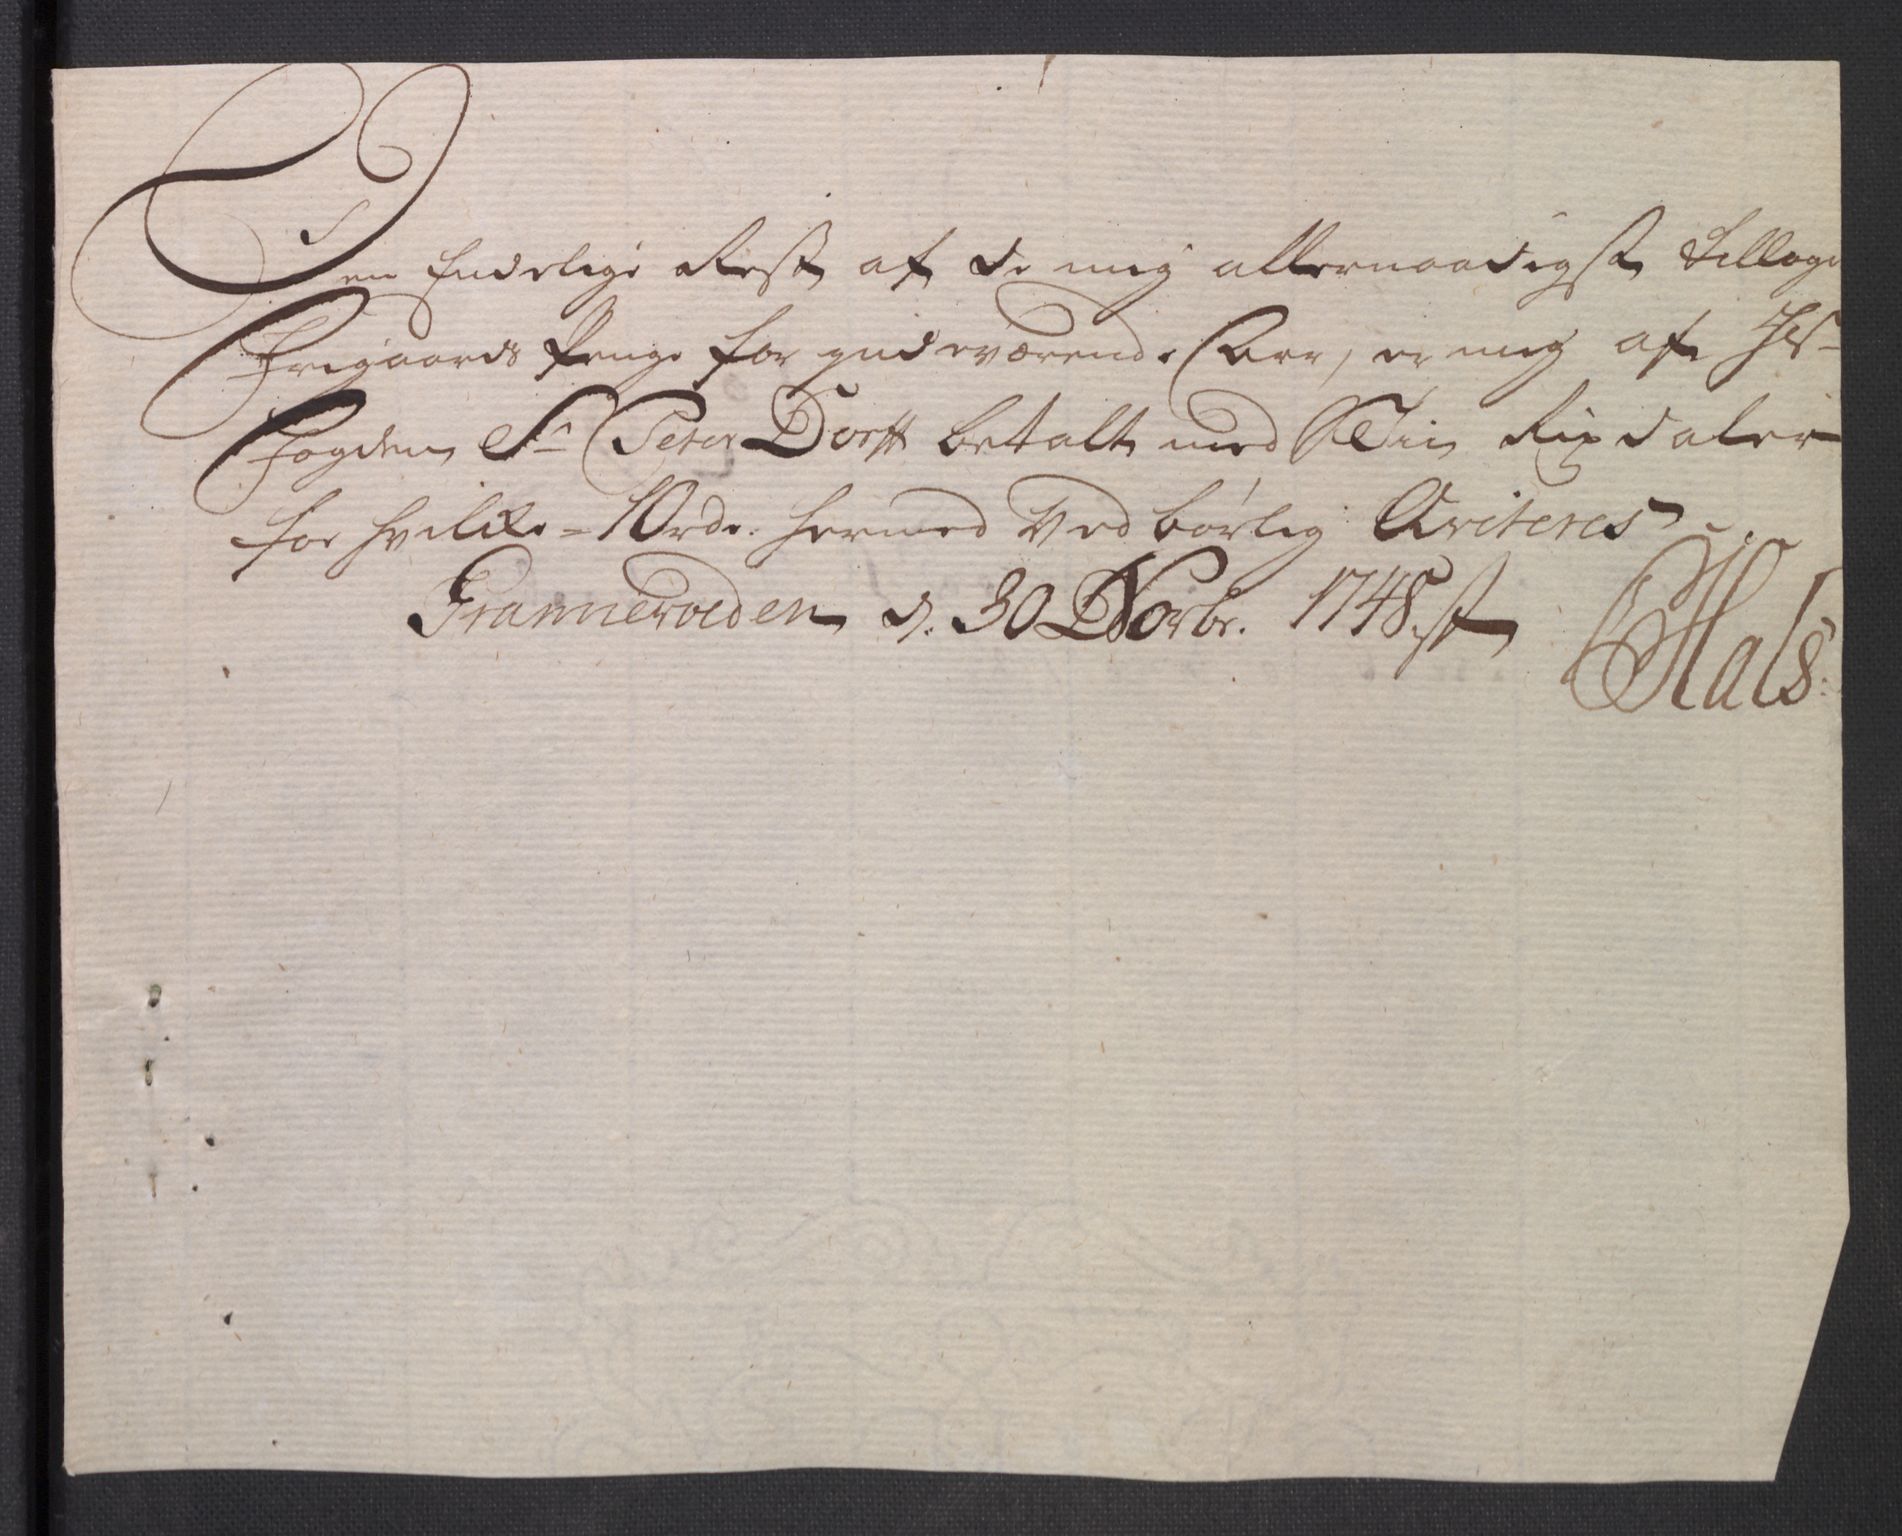 Den Endelige Rest af de mig allernaadigst tillagde
Frigaards Penge for indeværende Aar, er mig af Hr
Fogden Sr Peter Dorff betalt med Tie Rixdaler
for hvilke = 10 rdr. hermed Ved børlig Qviteres
Frannevolden d. 30 Novbr. 1748.
Hals